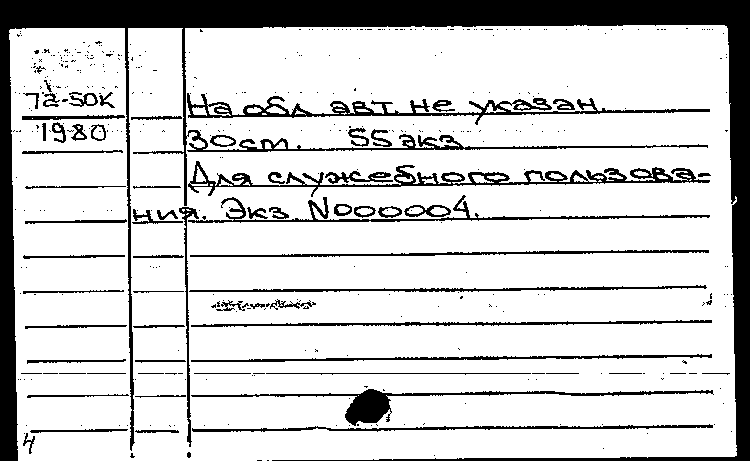 7а-50К На обл. авт. не указан.
1980 30 ст. 55 экз.
Для служебного пользова-
ния. Экз. N000004.
4